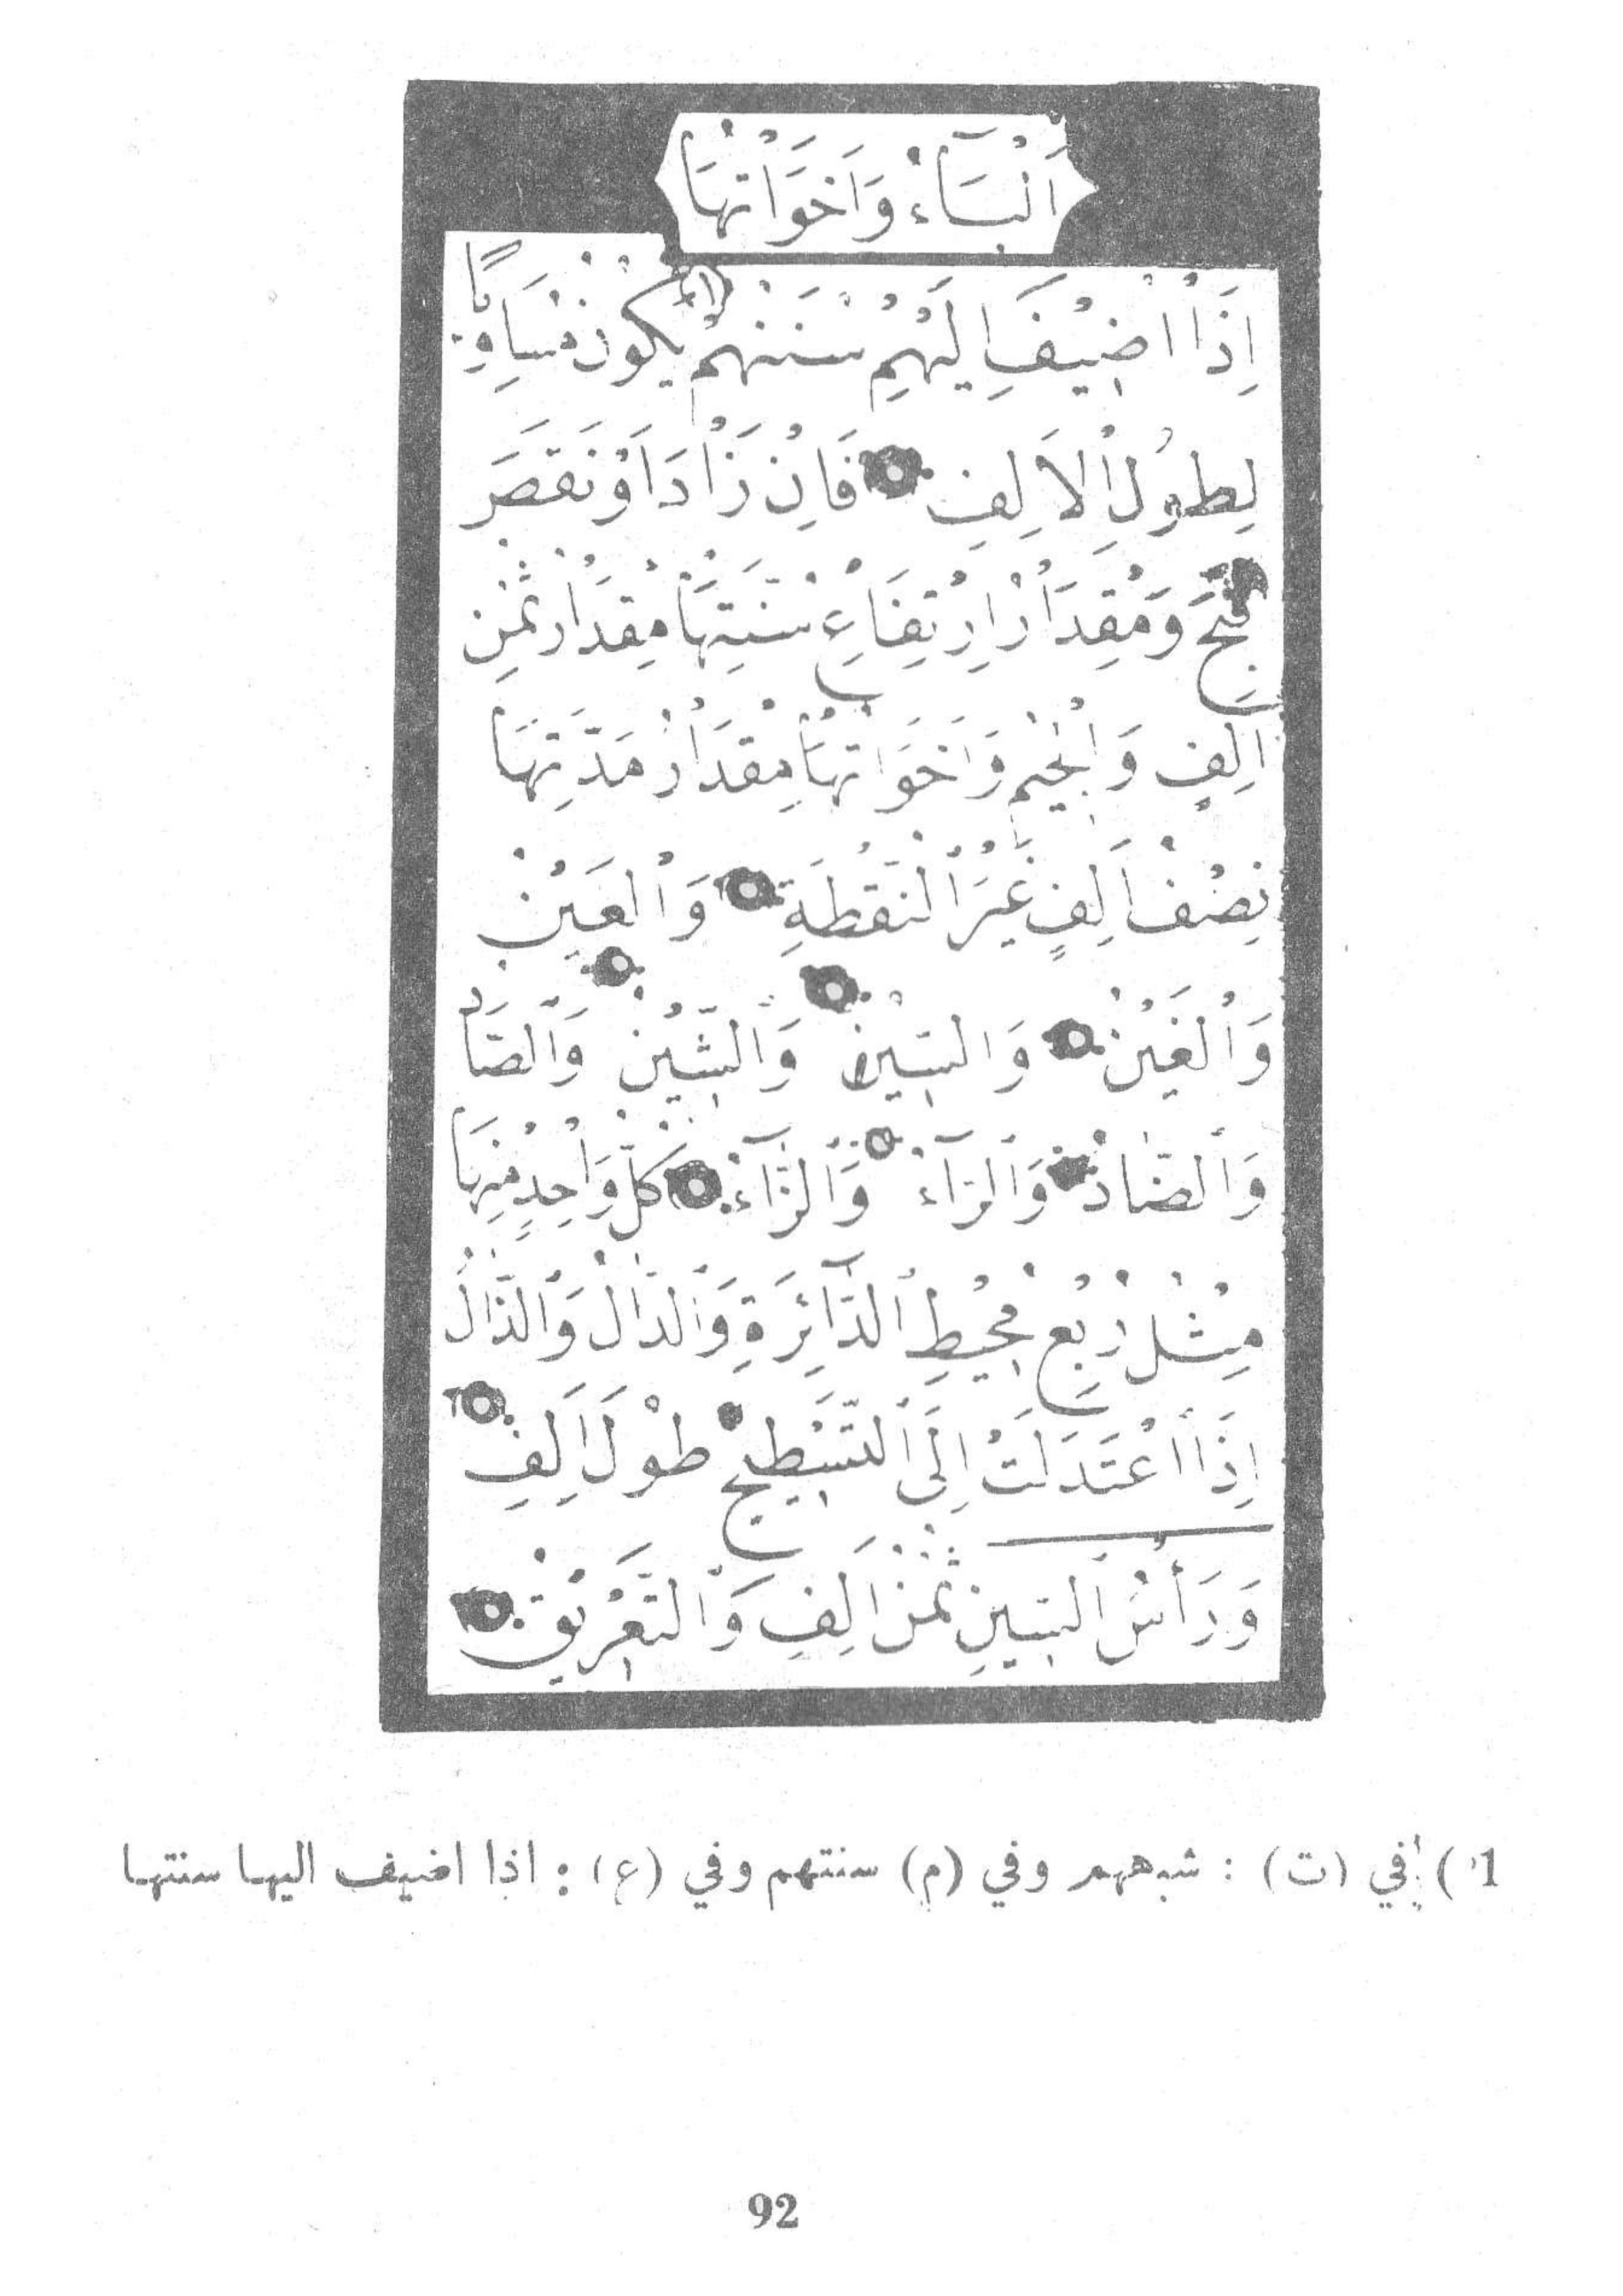 اَلْبَآءُ وَاَخَوَاتُهَا
اِذَا اُضِيْفَ اِلَيْهِمْ سَنَتُهُمْ (1) يَكُونُ مُسَاوِيًا
لِطُوْلِ الْاَلِفِ فَاِنْ زَادَ اَوْ نَقَصَ
قَبُحَ وَمِقْدَارُ اِرْتِفَاعِ سَنَّتِهَا مِقْدَارُ ثُمْنِ
اَلِفٍ وَالْجِيْمِ وَاَخَوَاتِهَا مِقْدَارُ مَدَّتِهَا
نِصْفُ اَلِفٍ غَيْرَ النُّقْطَةِ وَالْعَيْنُ
وَالْغَيْنُ وَالسِّيْنُ وَالشِّيْنُ وَالصَّادُ
وَالضَّادُ وَالرَّآءُ وَالزَّآءُ كُلُّ وَاحِدٍ مِنْهَا
مِثْلُ رُبُعِ مُحِيْطِ الدَّآئِرَةِ وَالدَّالُ وَالذَّالُ
اِذَا اعْتَدَلَتْ اِلَى التَّسْطِيْحِ طُوْلَ اَلِفٍ
وَرَأْسُ السِّينِ ثُمْنُ اَلِفِ وَالتَّعْرِيْقُ
1) في (ت) : شبههم وفي (م) سنتهم وفي (ع) : اذا اضيف اليها سنتها
92